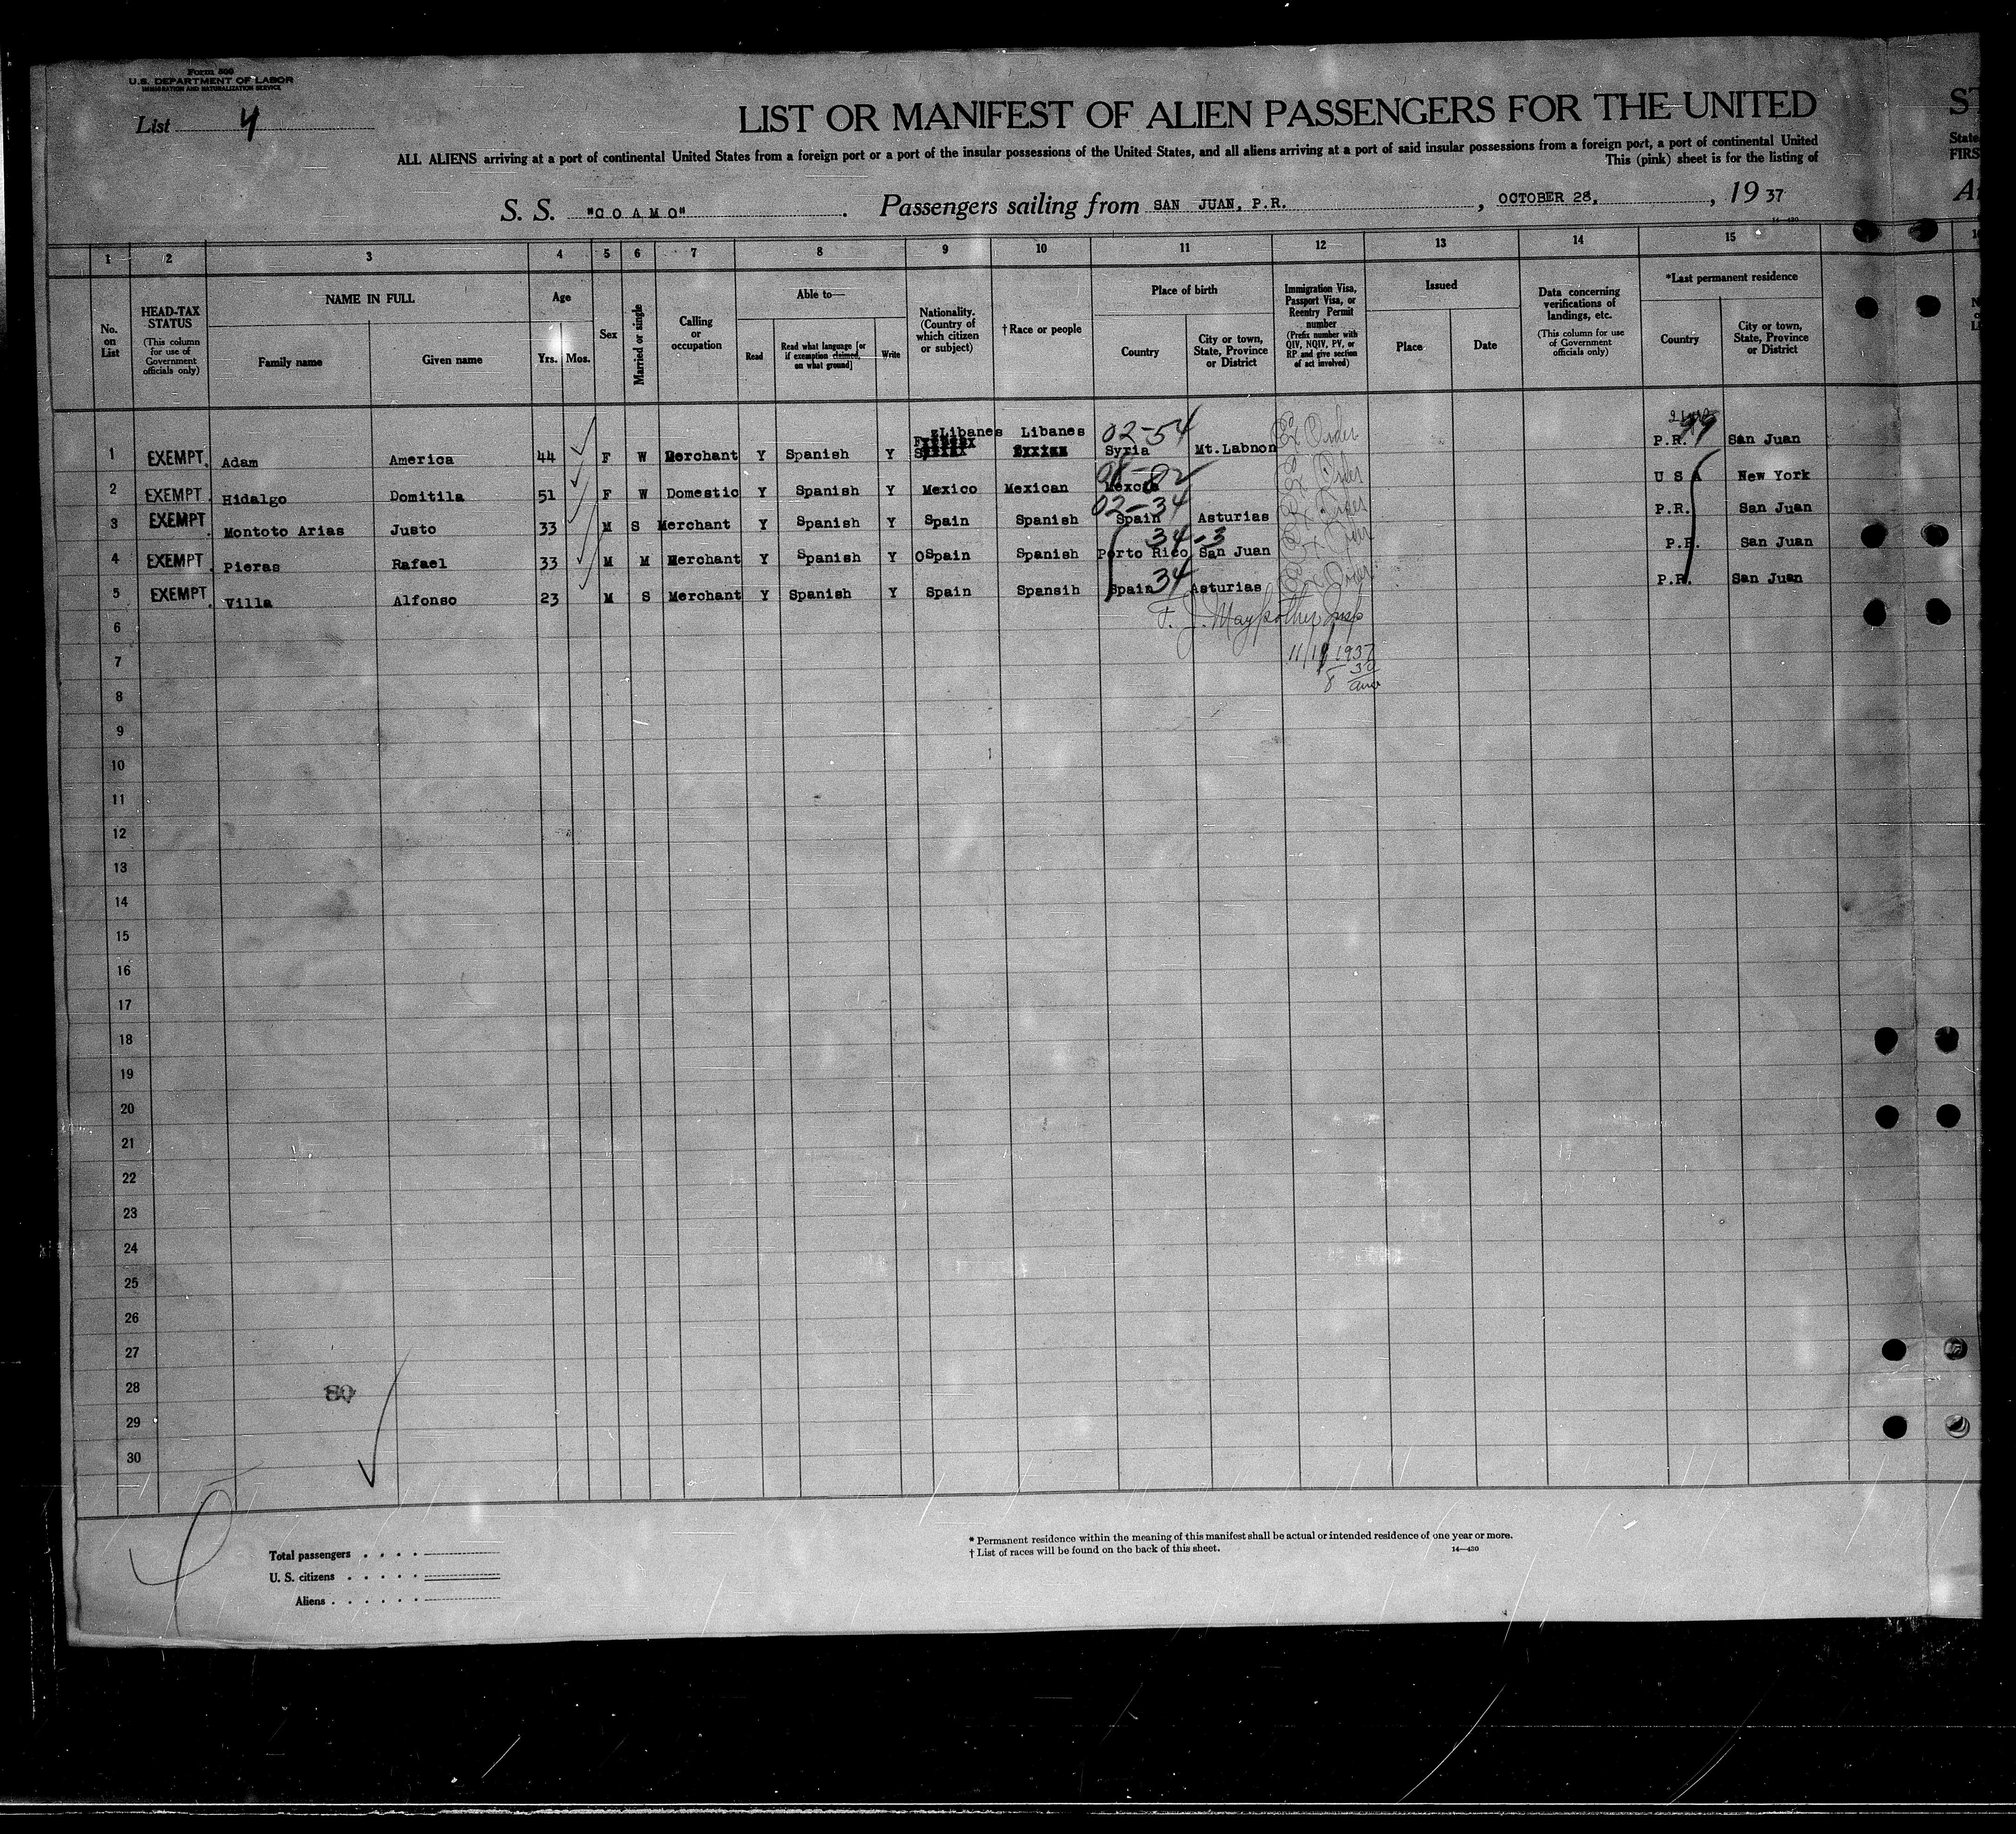 Form 500
U.S. DEPARTMENT OF LABOR
IMMIGRATION AND NATURALIZATION SERVICE
List 4
LIST OR MANIFEST OF ALIEN PASSENGERS FOR THE UNITED ST
ALL ALIENS arriving at a port of continental United States from a foreign port or a port of the insular possessions of the United States, and all aliens arriving at a port of said insular possessions from a foreign port, a port of continental United State
This (pink) sheet is for the listing of FIRS
S. S. "C O A M O". Passengers sailing from SAN JUAN, P.R., OCTOBER 28, , 19 37
14—430
1 2 3 4 5 6 7 8 9 10 11 12 13 14 15
No. on List
HEAD-TAX STATUS
(This column for use of Government officials only)
NAME IN FULL
Family name
Given name
Age
Yrs. Mos.
Sex
Married or single
Calling or occupation
Able to—
Read
Read what language [or if exemption claimed, on what ground]
Write
Nationality. (Country of which citizen or subject)
† Race or people
Place of birth
Country
City or town, State, Province or District
Immigration Visa, Passport Visa, or Reentry Permit number
(Prefix number with QIV, NQIV, PV, or RP and give section of act involved)
Issued
Place
Date
Data concerning verifications of landings, etc.
(This column for use of Government officials only)
*Last permanent residence
Country
City or town, State, Province or District
02-54
99
1 EXEMPT. Adam America 44 F W Merchant Y Spanish Y Libanes Libanes Syria Mt.Labnon Ex Order P.R. San Juan
2 EXEMPT. Hidalgo Domitila 51 F W Domestic Y Spanish Y Mexico Mexican Ex Order U S A New York
02-34
3 EXEMPT. Montoto Arias Justo 33 M S Merchant Y Spanish Y Spain Spanish Spain Asturias Ex Order P.R. San Juan
34-3
4 EXEMPT. Pieras Rafael 33 M M Merchant Y Spanish Y OSpain Spanish Porto Rico San Juan P.R. San Juan
34
5 EXEMPT. Villa Alfonso 23 M S Merchant Y Spanish Y Spain Spansih Spain Asturias Ex Order P.R. San Juan
6 F. J. Maypother Insp
7
8
9
10
11
12
13
14
15
16
17
18
19
20
21
22
23
24
25
26
27
28
29
30
Total passengers . . . .
U. S. citizens . . . . .
Aliens . . . . . .
* Permanent residence within the meaning of this manifest shall be actual or intended residence of one year or more.
† List of races will be found on the back of this sheet.
14—430